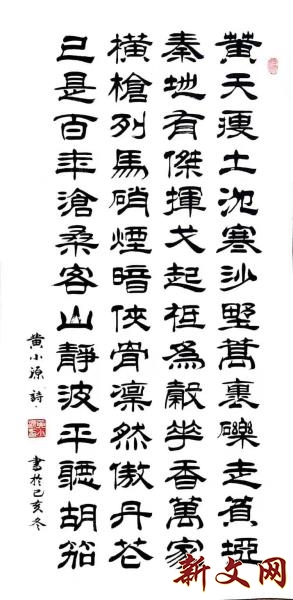 黄天瘦土沈寒沙野蒿裹礫走垭
秦地有傑揮戈起爲穀香萬家
橫槍列馬硝煙暗俠骨凜然傲丹花
已是百年滄桑客山靜波平聽胡笳
黄小源詩·書於己亥冬
新文网